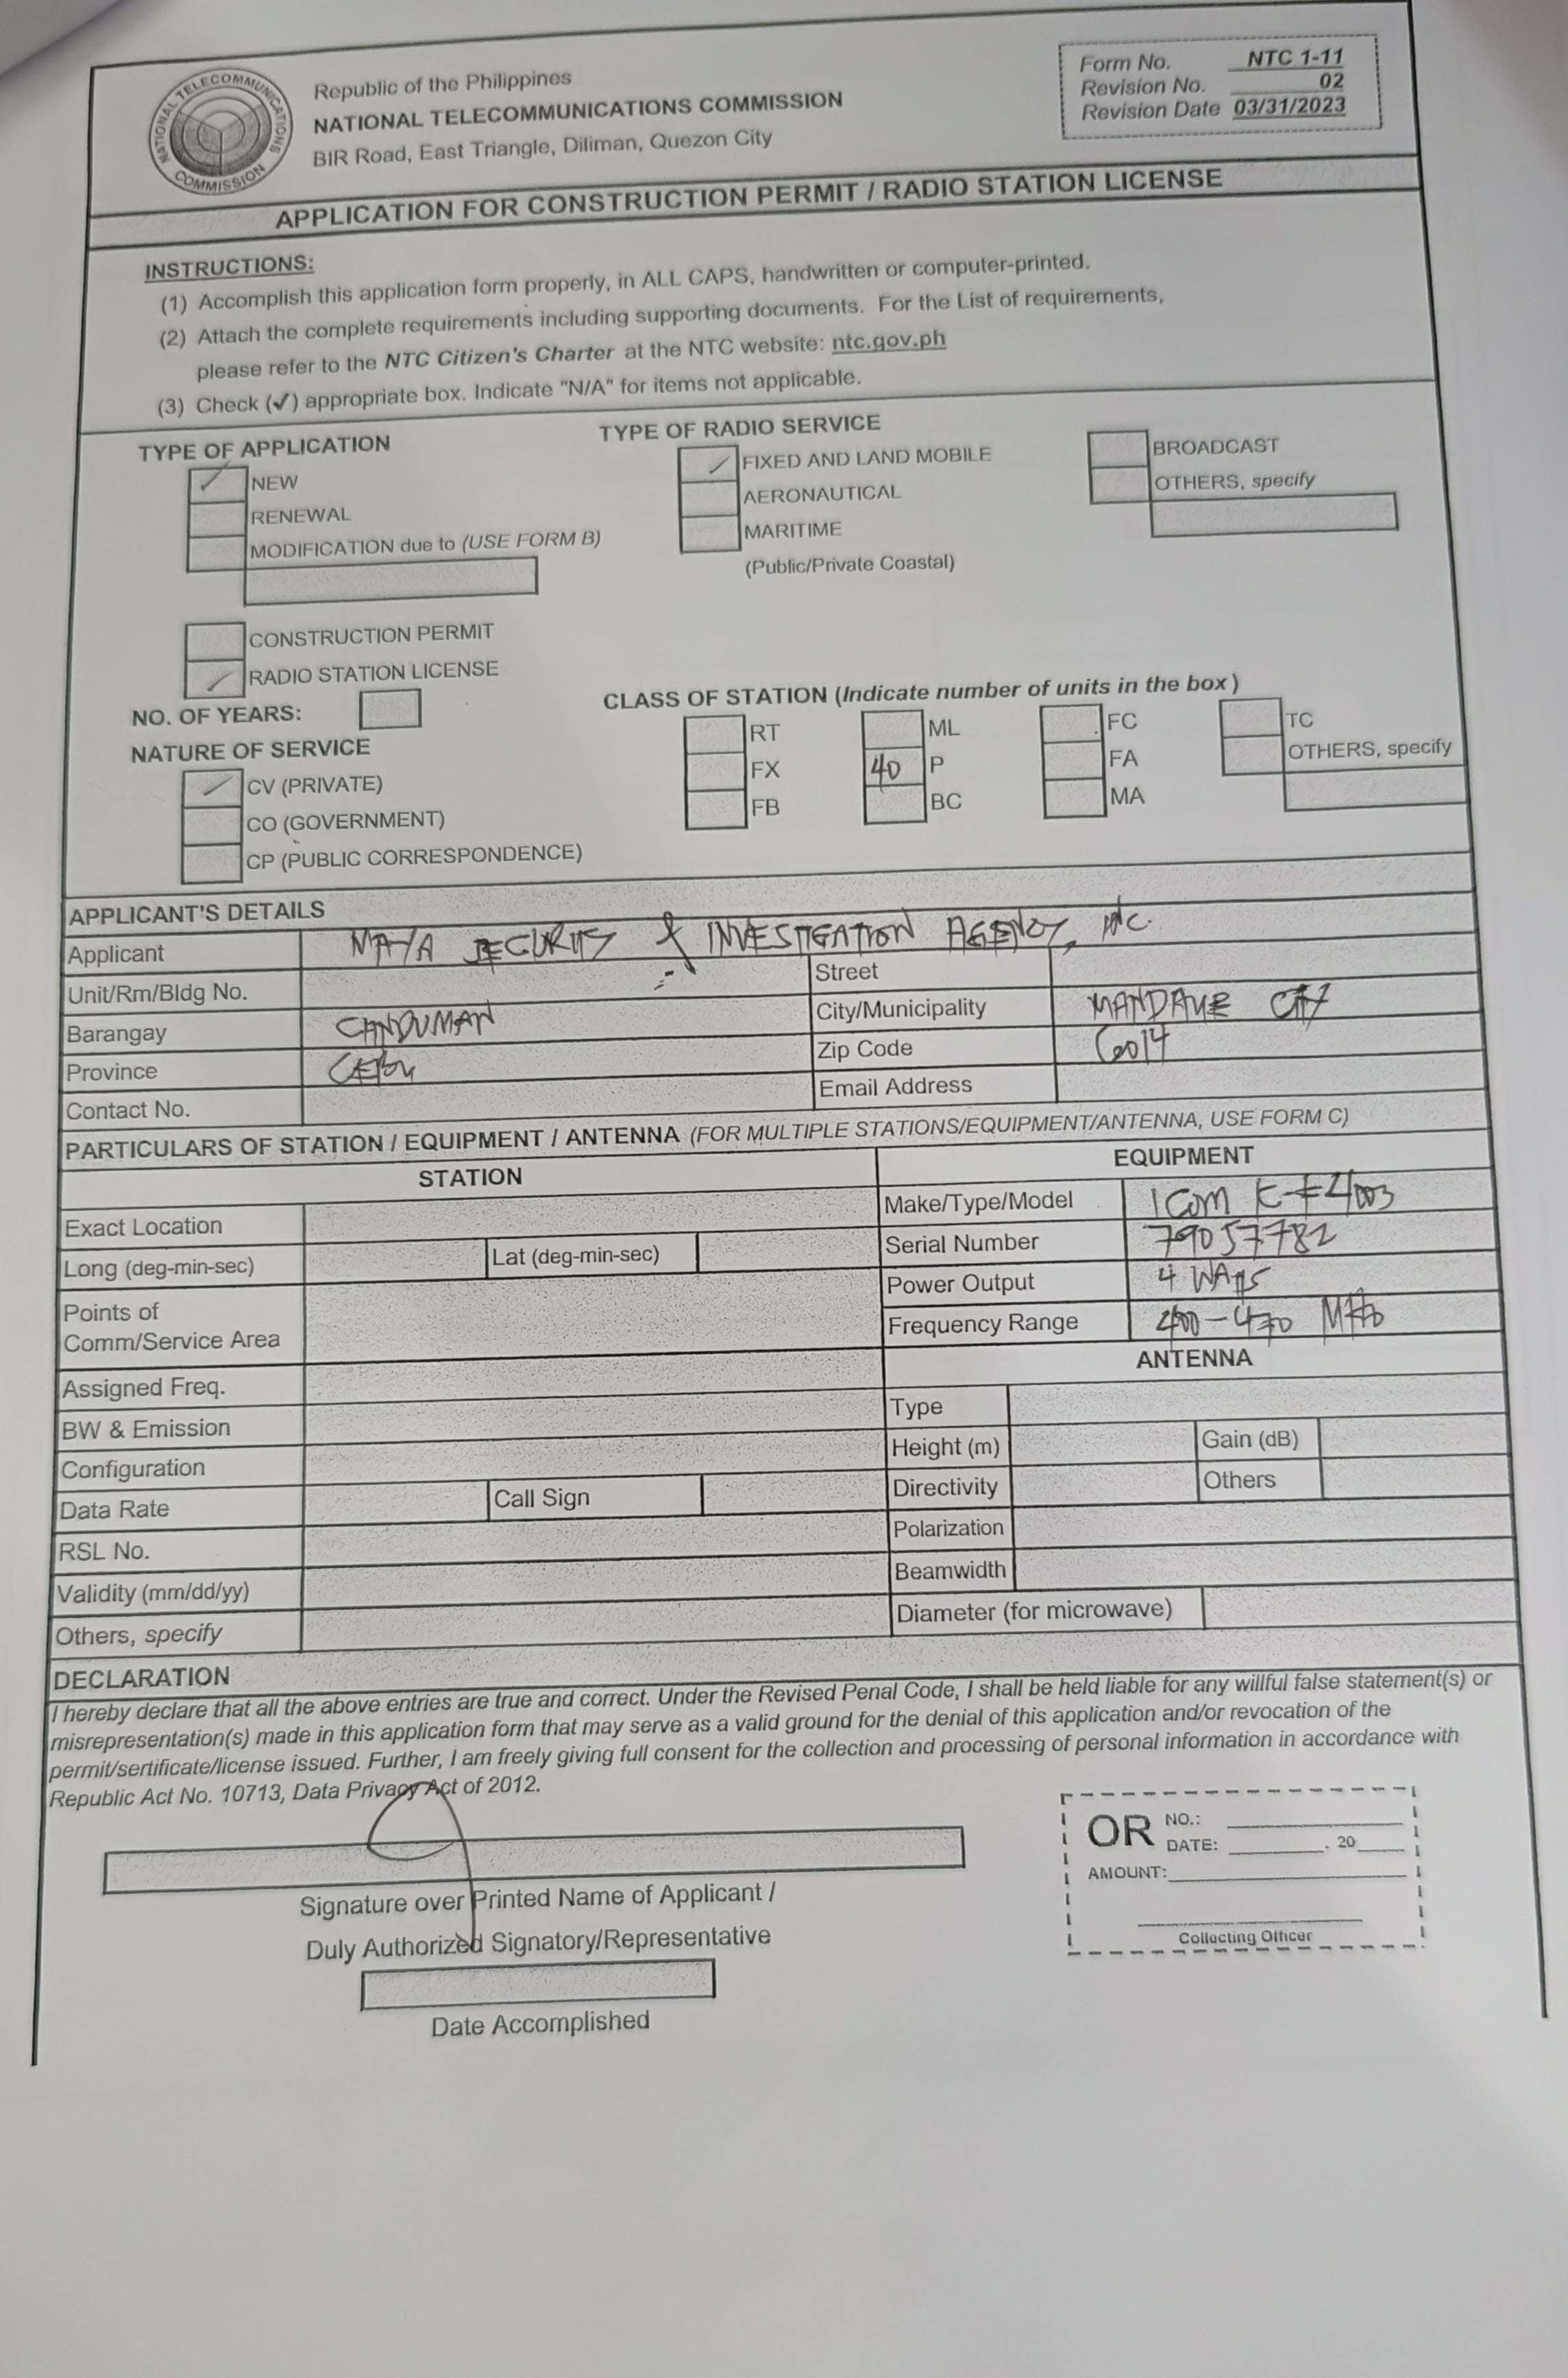 NATIONAL TELECOMMUNICATIONS COMMISSION
Republic of the Philippines
NATIONAL TELECOMMUNICATIONS COMMISSION
BIR Road, East Triangle, Diliman, Quezon City
Form No. NTC 1-11
Revision No. 02
Revision Date 03/31/2023
APPLICATION FOR CONSTRUCTION PERMIT / RADIO STATION LICENSE
INSTRUCTIONS:
(1) Accomplish this application form properly, in ALL CAPS, handwritten or computer-printed.
(2) Attach the complete requirements including supporting documents. For the List of requirements,
please refer to the NTC Citizen's Charter at the NTC website: ntc.gov.ph
(3) Check (✓) appropriate box. Indicate "N/A" for items not applicable.
TYPE OF APPLICATION
✓ NEW
RENEWAL
MODIFICATION due to (USE FORM B)
TYPE OF RADIO SERVICE
✓ FIXED AND LAND MOBILE
AERONAUTICAL
MARITIME
(Public/Private Coastal)
BROADCAST
OTHERS, specify
CONSTRUCTION PERMIT
✓ RADIO STATION LICENSE
NO. OF YEARS:
NATURE OF SERVICE
✓ CV (PRIVATE)
CO (GOVERNMENT)
CP (PUBLIC CORRESPONDENCE)
CLASS OF STATION (Indicate number of units in the box)
RT ML FC TC
FX 40 P FA OTHERS, specify
FB BC MA
APPLICANT'S DETAILS
Applicant SECURITY & INVESTIGATION AGENCY, INC.
Unit/Rm/Bldg No. Street
Barangay CANDUMAN City/Municipality MANDAUE CITY
Province CEBU Zip Code 6014
Contact No. Email Address
PARTICULARS OF STATION / EQUIPMENT / ANTENNA (FOR MULTIPLE STATIONS/EQUIPMENT/ANTENNA, USE FORM C)
STATION
Exact Location
Long (deg-min-sec) Lat (deg-min-sec)
Points of
Comm/Service Area
Assigned Freq.
BW & Emission
Configuration
Data Rate Call Sign
RSL No.
Validity (mm/dd/yy)
Others, specify
EQUIPMENT
Make/Type/Model ICOM
Serial Number 79057782
Power Output 4 WATTS
Frequency Range 400-470 MHz
ANTENNA
Type
Height (m) Gain (dB)
Directivity Others
Polarization
Beamwidth
Diameter (for microwave)
DECLARATION
I hereby declare that all the above entries are true and correct. Under the Revised Penal Code, I shall be held liable for any willful false statement(s) or
misrepresentation(s) made in this application form that may serve as a valid ground for the denial of this application and/or revocation of the
permit/sertificate/license issued. Further, I am freely giving full consent for the collection and processing of personal information in accordance with
Republic Act No. 10713, Data Privacy Act of 2012.
Signature over Printed Name of Applicant /
Duly Authorized Signatory/Representative
Date Accomplished
OR NO.:
DATE: , 20
AMOUNT:
Collecting Officer